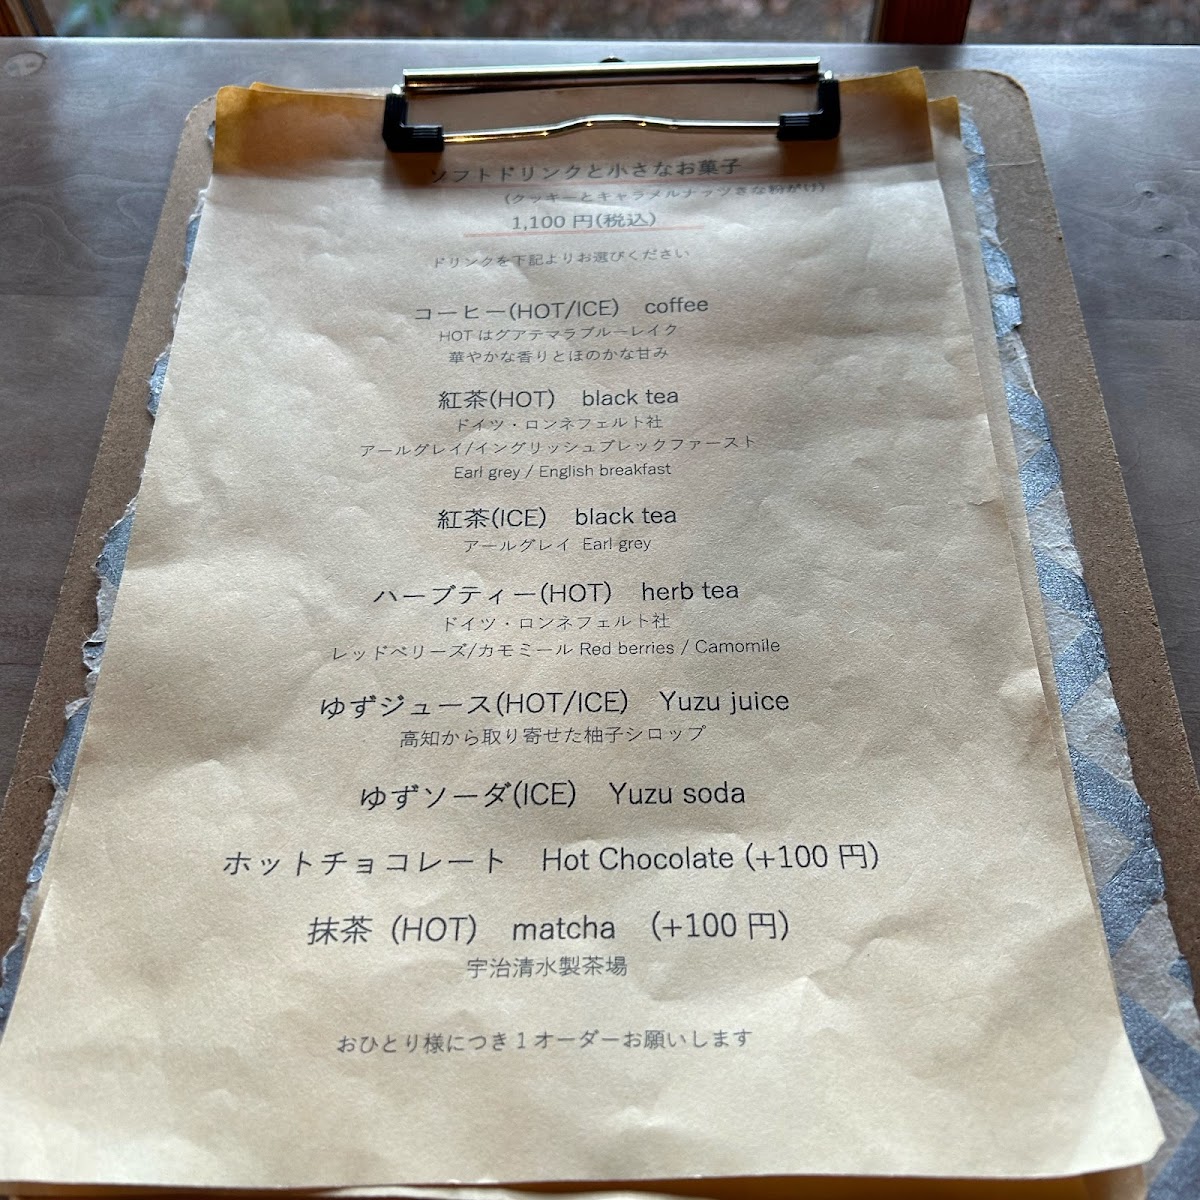 ソフトドリンクと小さなお菓子
(クッキーとキャラメルナッツきな粉がけ)
1,100 円(税込)
ドリンクを下記よりお選びください
コーヒー(HOT/ICE) coffee
HOT はグアテマラブルーレイク
華やかな香りとほのかな甘み
紅茶(HOT) black tea
ドイツ・ロンネフェルト社
アールグレイ/イングリッシュブレックファースト
Earl grey / English breakfast
紅茶(ICE) black tea
アールグレイ Earl grey
ハーブティー(HOT) herb tea
ドイツ・ロンネフェルト社
レッドベリーズ/カモミール Red berries / Camomile
ゆずジュース(HOT/ICE) Yuzu juice
高知から取り寄せた柚子シロップ
ゆずソーダ(ICE) Yuzu soda
ホットチョコレート Hot Chocolate (+100 円)
抹茶 (HOT) matcha (+100 円)
宇治清水製茶場
おひとり様につき 1 オーダーお願いします